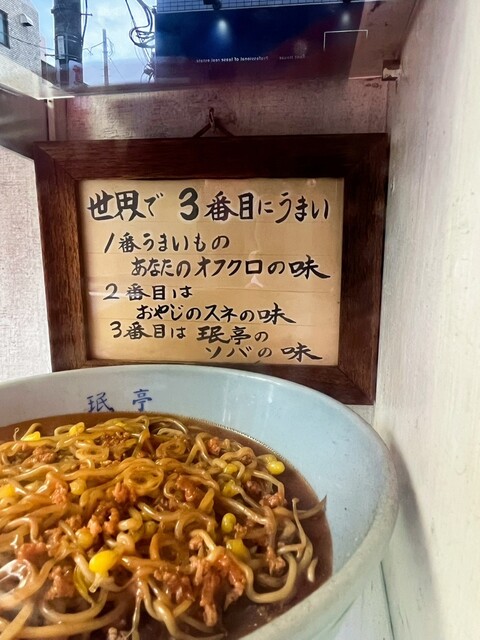 世界で 3番目にうまい
1番うまいもの
あなたのオフクロの味
2番目は
おやじのスネの味
3番目は 珉亭の
ソバの味
珉亭